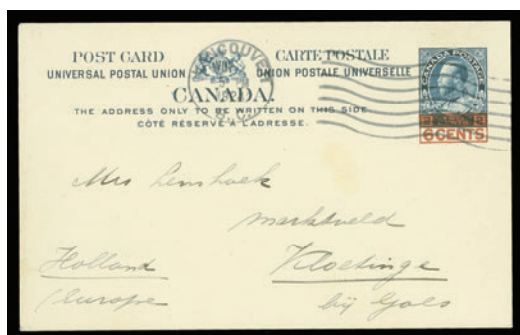 POST CARD
CARTE POSTALE
UNIVERSAL POSTAL UNION
UNION POSTALE UNIVERSELLE
CANADA.
THE ADDRESS ONLY TO BE WRITTEN ON THIS SIDE.
CÔTÉ RÉSERVÉ À L'ADRESSE.
VANCOUVER
B.C.
CANADA POSTAGE
6 CENTS
Mrs Lenshoek
marktveld
Kloetinge
bij Goes
Holland
Europe